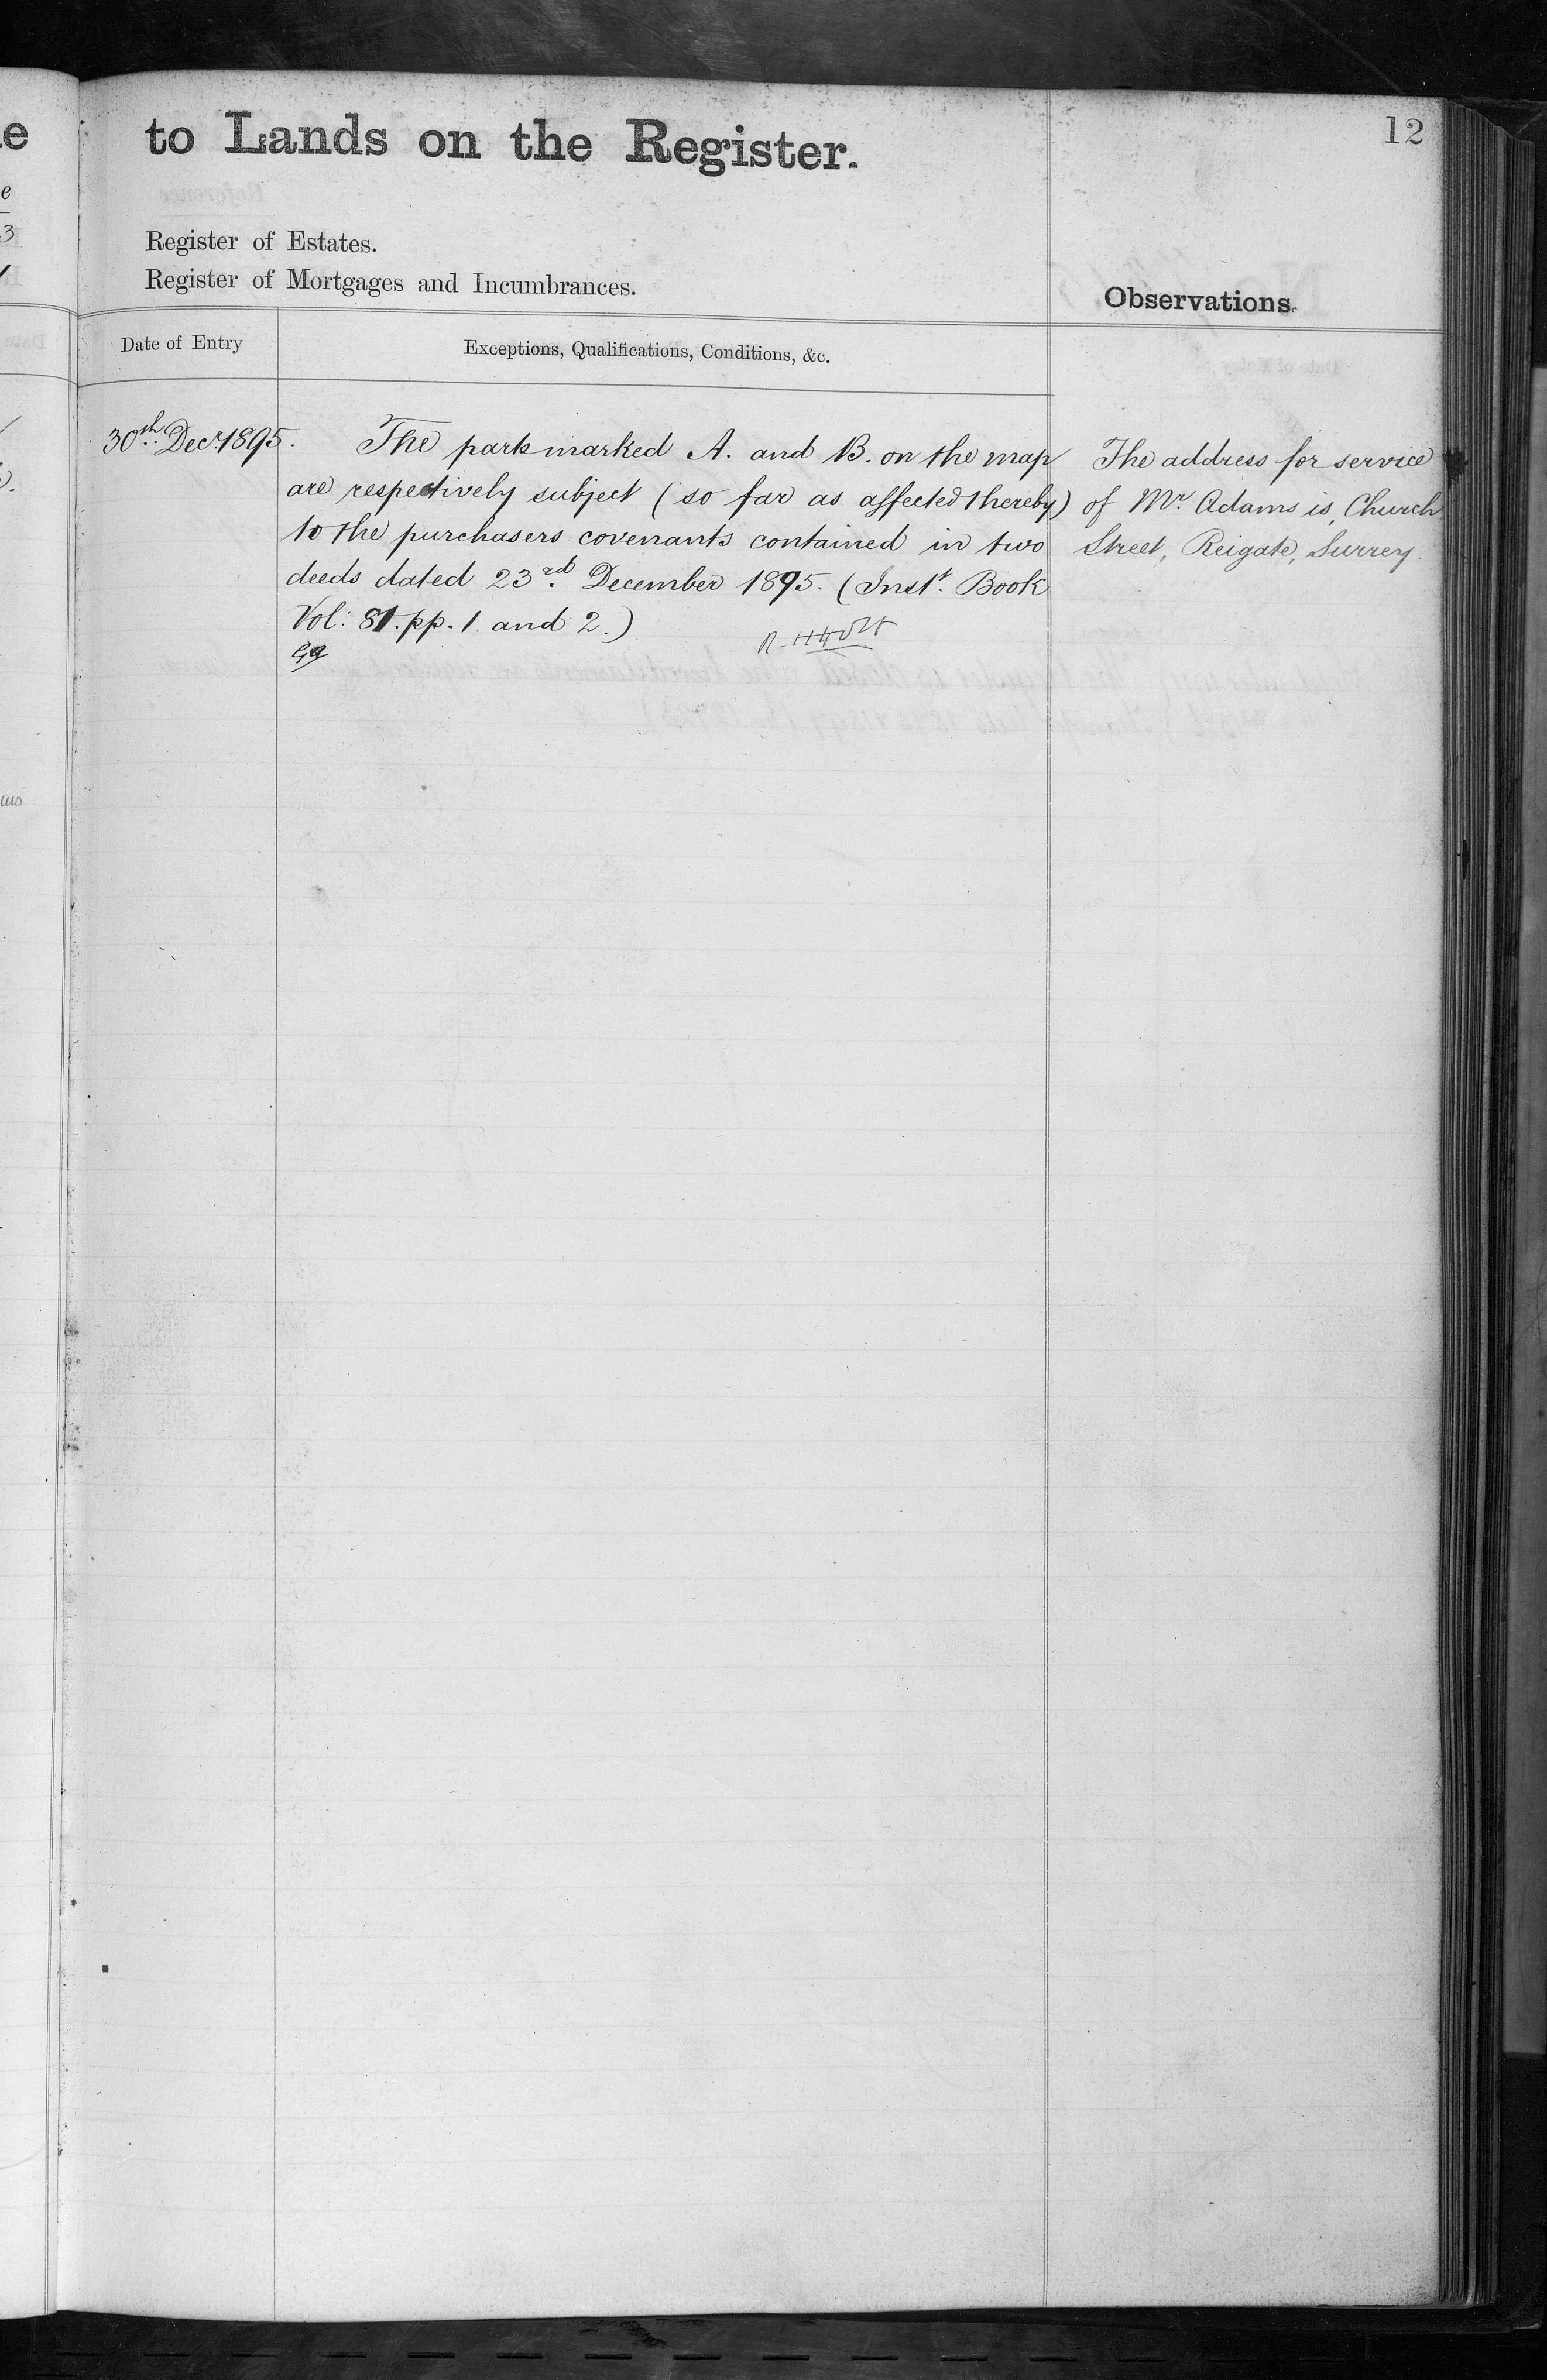 12
to Lands on the Register.
Register of Estates.
Register of Mortgages and Incumbrances.
Observations.
Date of Entry
Exceptions, Qualifications, Conditions, &c.
30th Decr. 1895.
The parts marked A. and B. on the map
are respectively subject (so far as affected thereby)
to the purchasers covenants contained in two
deeds dated 23rd. December 1895. (Inst. Book
Vol: 81. pp. 1. and 2.)
The address for service
of Mr. Adams is, Church
Street, Reigate, Surrey.